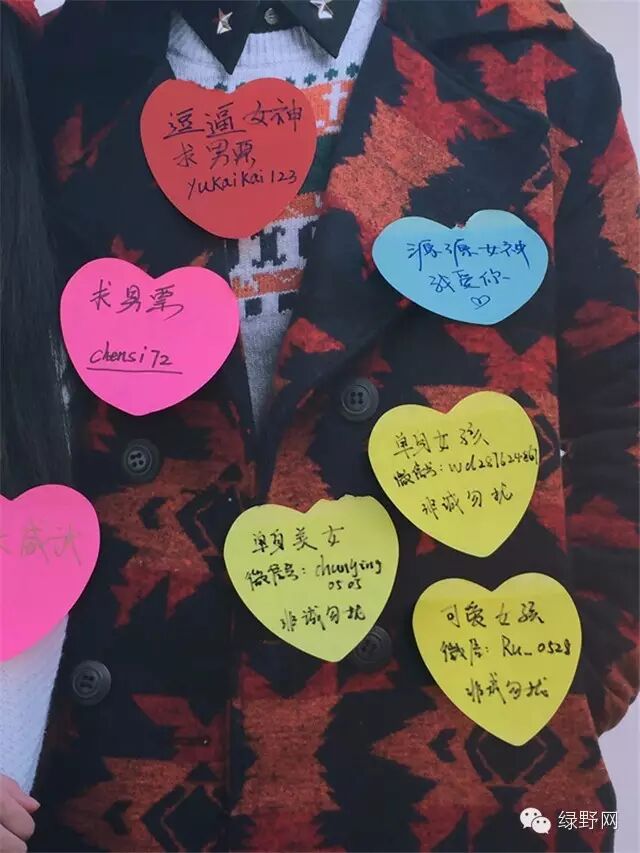 逗逼女神
求男票
yukaikai123
源源女神
我爱你
求男票
chensi72
单身女孩
微信号：wd287624867
非诚勿扰
威武
单身美女
微信号：chunying
0505
非诚勿扰
可爱女孩
微信：Ru_0528
非诚勿扰
绿野网